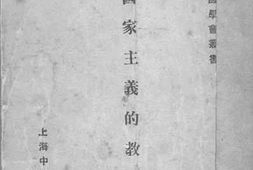 國學會叢書
國家主義的教
上海中